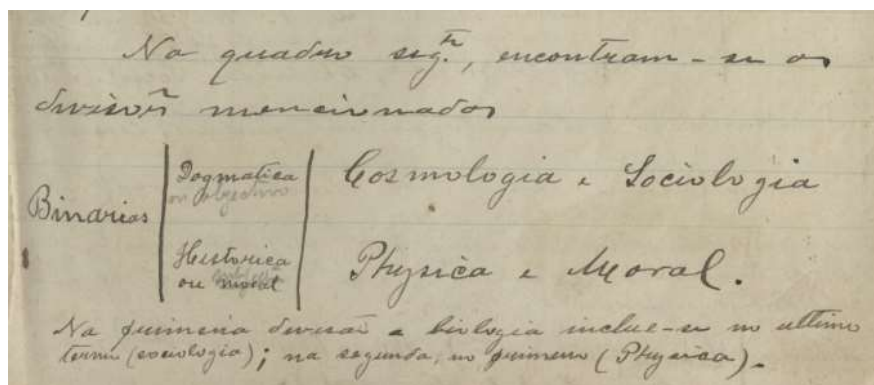 No quadro seg.te, encontram-se as
divisões mencionadas
Binarias
Dogmatica
ou objectiva
Cosmologia e Sociologia
Historica
ou moral
Physica e Moral.
Na primeira divisão a biologia inclue-se no ultimo
termo (sociologia); na segunda, no primeiro (Physica).